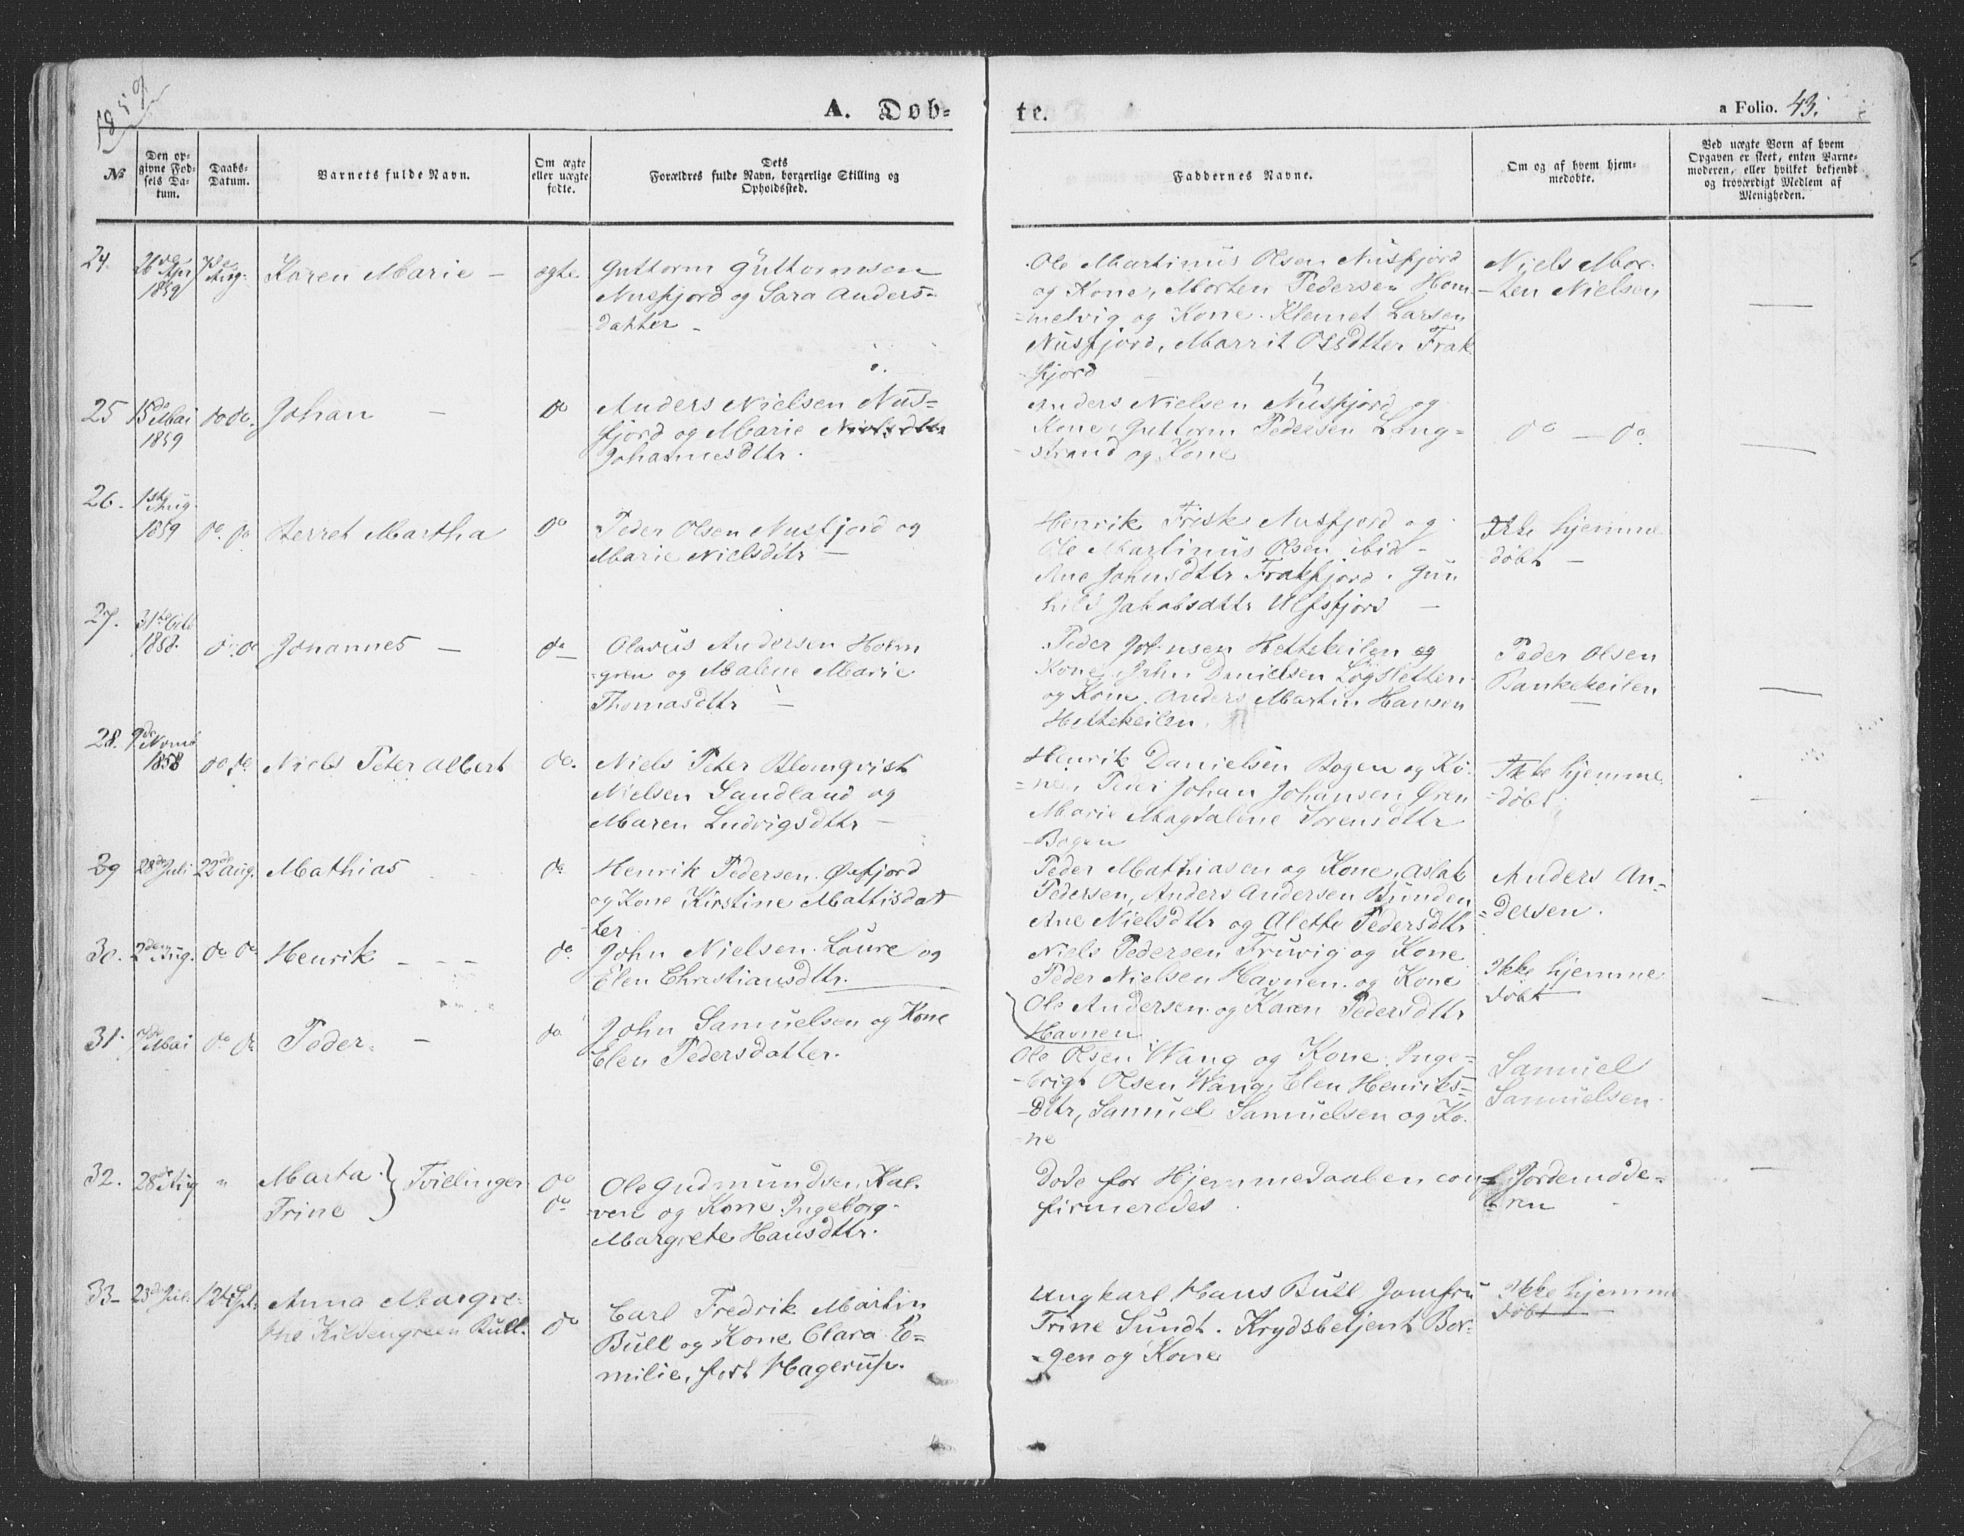 1859
A. Dob-
te.
a Folio. 43.
No
Den op-
givne Fød-
sels Da-
tum.
Daabs-
Datum.
Barnets fulde Navn.
Om ægte
eller uægte
fødte.
Dets
Forældres fulde Navn, borgerlige Stilling og
Opholdssted.
Faddernes Navne.
Om og af hvem hjem-
medøbte.
Ved uægte Børn af hvem
Opgaven er skeet, enten Barne-
moderen, eller hvilket bekjendt
og troværdigt Medlem af
Menigheden.
24.
Apr
1859
7de
Aug.
Karen Marie –
ægte.
Guttorm Guttormsen
Nusfjord og Sara Anders-
datter –
Ole Martinus Olsen Nusfjord
og Kone, Morten Pedersen Hom-
melvig og Kone. Klemet Larsen
Nusfjord, Marrit Olsdtter Frak
fjord
Niels Mor-
ten Nielsen
25
15de Mai
1859
do do.
Johan –
do
Anders Nielsen Nus-
fjord og Marie Nielsdttr
Johannesdttr.
Anders Nielsen Nusfjord og
Kone, Guttorm Pedersen Lang-
strand og Kone
do – do.
26.
1ste Aug.
1859
do. do
Berret Martha
do
Peder Olsen Nusfjord og
Marie Nielsdttr –
Henrik Frisk Nusfjord og
Ole Martinus Olsen ibid –
Ane Johnsdttr Frakfjord. Gun
hild Jakobsdttr Ulfsfjord –
Ikke hjemme
døbt –
27.
31te Octb
1858.
do. do
Johannes –
do
Olavus Andersen Holm
gren og Malene Marie
Thomasdttr –
Peder Johnsen Hettekeilen og
Kone, John Danielsen Løgsletten
og Kone. Anders Martin Hansen
Hettekeilen.
Peder Olsen
Bankekeilen
28.
9de Novmb
1858
do do
Niels Peter Albert
do.
Niels Peter Blomqvist
Nielsen Sandland og
Maren Ludvigsdttr –
Henrik Danielsen Bogen og Ko-
ne, Peder Johan Johansen Øren
Marie Magdalene Sørensdttr
Bogen
Ikke hjemme
døbt
29
28de Juli
22de Aug.
Mathias
do
Henrik Pedersen
og Kone Kirstine Mattisdat
ter
Peder Mathiasen og Kone, Aslak
Pedersen, Anders Andersen Bunden
Ane Nielsdttr og Alette Pedersdttr
Anders An-
dersen.
30.
2den Aug.
do do
Henrik – – –
do.
John Nielsen og
Elen Christiansdttr.
Niels Pedersen Fruvig og Kone
Peder Nielsen Havnen og Kone
Ole Andersen og Karen Pedersdttr
Havnen
Ikke hjemme
døbt
31.
Mai
do do
Peder –
do
John Samuelsen og Kone
Elen Pedersdatter.
Ole Olsen Wang og Kone. Inge-
brigt Olsen Wang, Elen Henriks-
dttr, Samuel Samuelsen og Ko-
ne
Samuel
Samuelsen.
32.
28de Aug
"
Marta
Trine } Tvillinger
do
do
Ole Gudmundsen Kal-
ven og Kone Ingeborg
Margrete Hansdttr.
Døde før Hjemmedaaben con-
firmeredes.
Jordemode-
ren
33
23de Juli
12te Spt.
Anna Margre-
the Kildengreen Bull.
do
Carl Fredrik Martin
Bull og Kone Clara E-
milie, født Hagerup.
Ungkarl Hans Bull Jomfru
Trine Sundt. Krydsbetjent Bor-
gen og Kone
Ikke hjemme
døbt